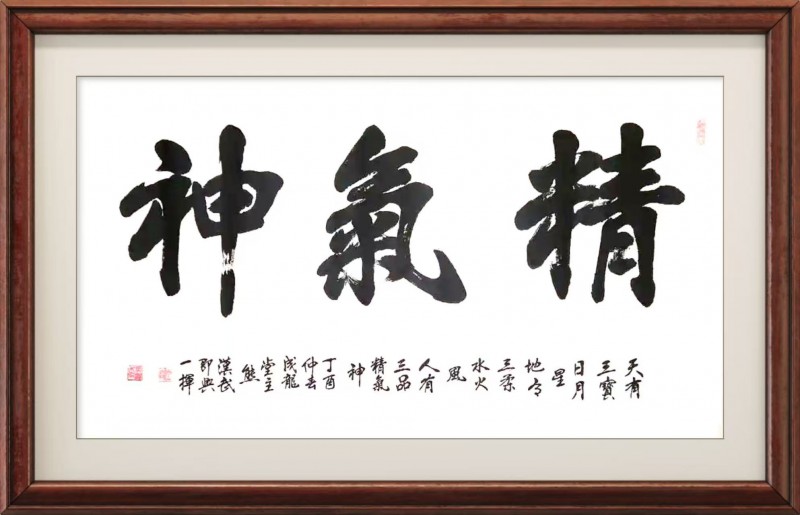 精氣神
天有
三寶
日月
星
地
三
水火
風
人有
三品
精氣
神
丁酉
仲
成龍
堂主
熊
漢武
即興
一揮